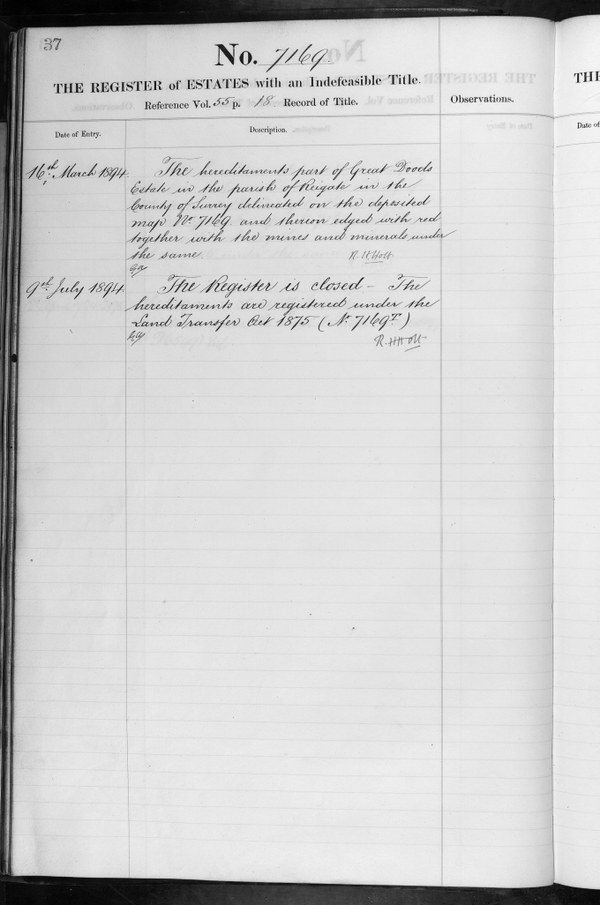 37
No. 7169.
THE REGISTER of ESTATES with an Indefeasible Title.
Reference Vol. 55 p. 18 Record of Title.
Observations.
Date of Entry.
Description.
16th March 1894.
The hereditaments part of Great Doods
Estate in the parish of Reigate in the
County of Surrey delineated on the deposited
map No. 7169 and thereon edged with red
together with the mines and minerals under
the same.
R. H. Holt
9th July 1894.
The Register is closed – The
hereditaments are registered under the
Land Transfer Act 1875 (No. 7169T.)
R. H. Holt
TH
Date of